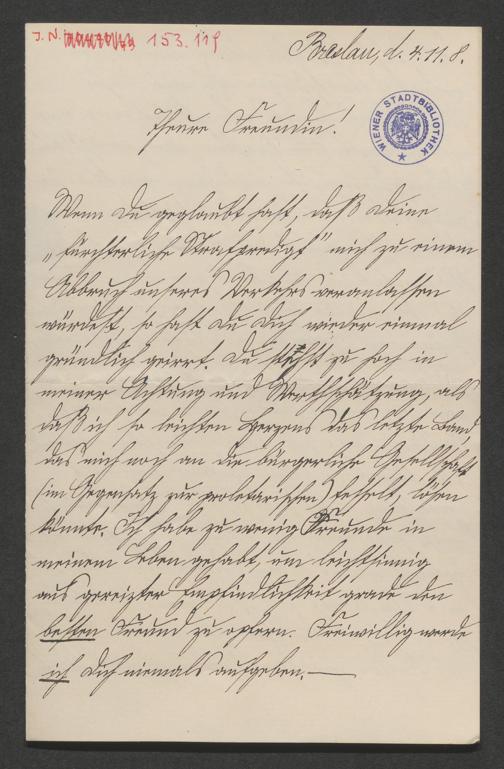 J. N. 153.119
Breslau, d. 4.11.8.
WIENER STADTBIBLIOTHEK
Theure Freundin!
Wenn Du geglaubt hast, daß Deine
„fürchterliche Strafpredigt" mich zu einem
Abbruch unseres Verkehrs veranlassen
würdest, so hast Du Dich wieder einmal
gründlich geirrt. Du stehst zu hoch in
meiner Achtung und Werthschätzung, als
daß ich so leichten Herzens das letzte Band
das mich noch an die bürgerliche Gesellschaft
(im Gegensatz zur proletarischen) fesselt, lösen
könnte. Ich habe zu wenig Freunde in
meinem Leben gehabt, um leichtsinnig
aus gereizter Empfindlichkeit grade den
besten Freund zu opfern. Freiwillig werde
ich Dich niemals aufgeben.—